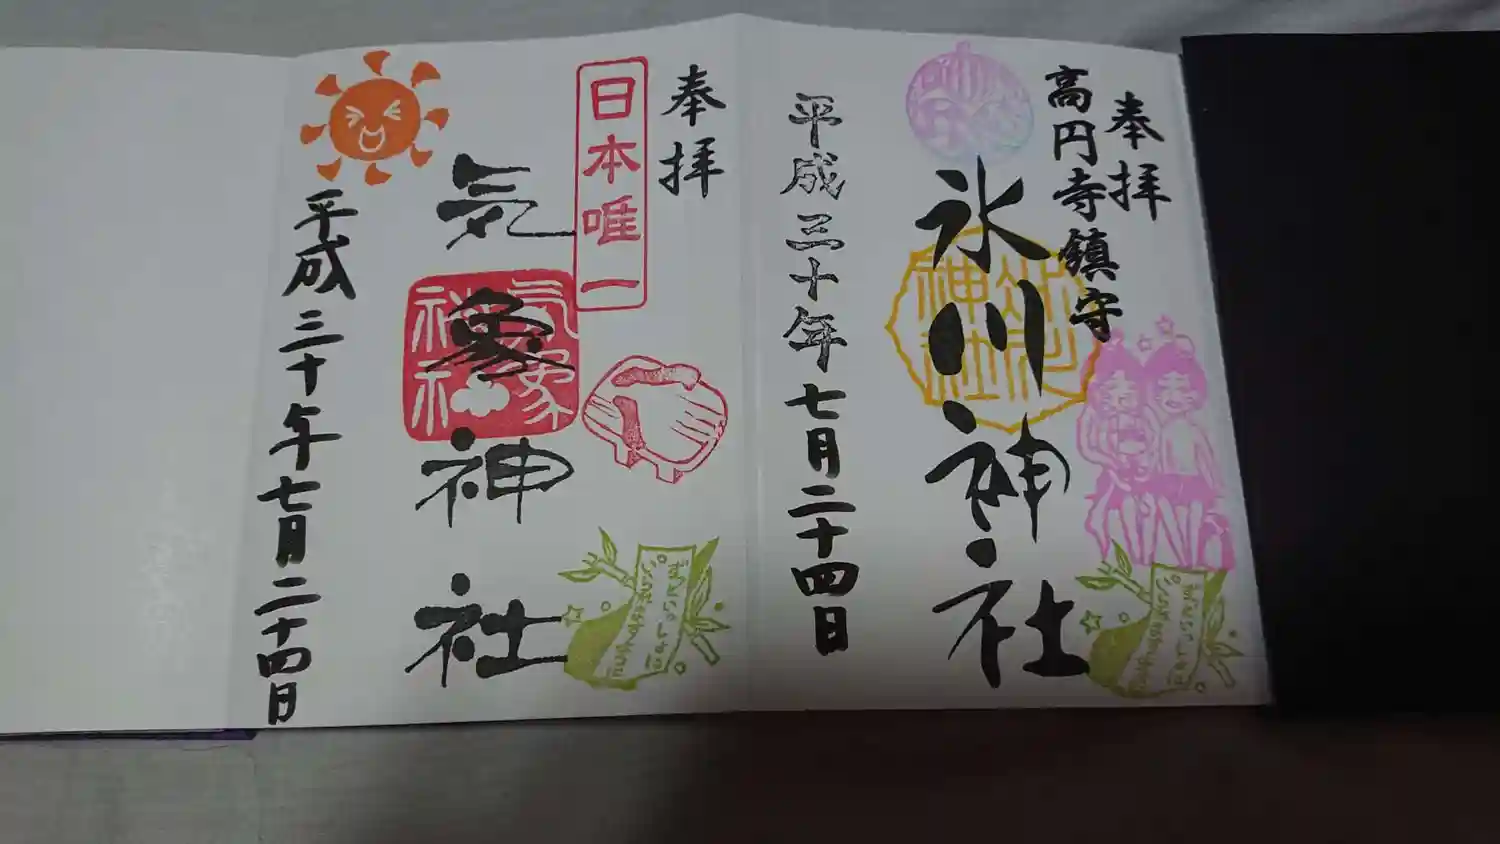 奉拝
高円寺鎮守
氷川神社
平成三十年七月二十四日
奉拝
日本唯一
気象神社
気象神社
平成三十年七月二十四日